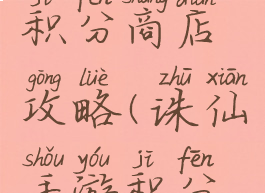 jī fēn shāng diàn
积分商店
gōng lüè zhū xiān
攻略(诛仙
shǒu yóu jī fēn
手游积分